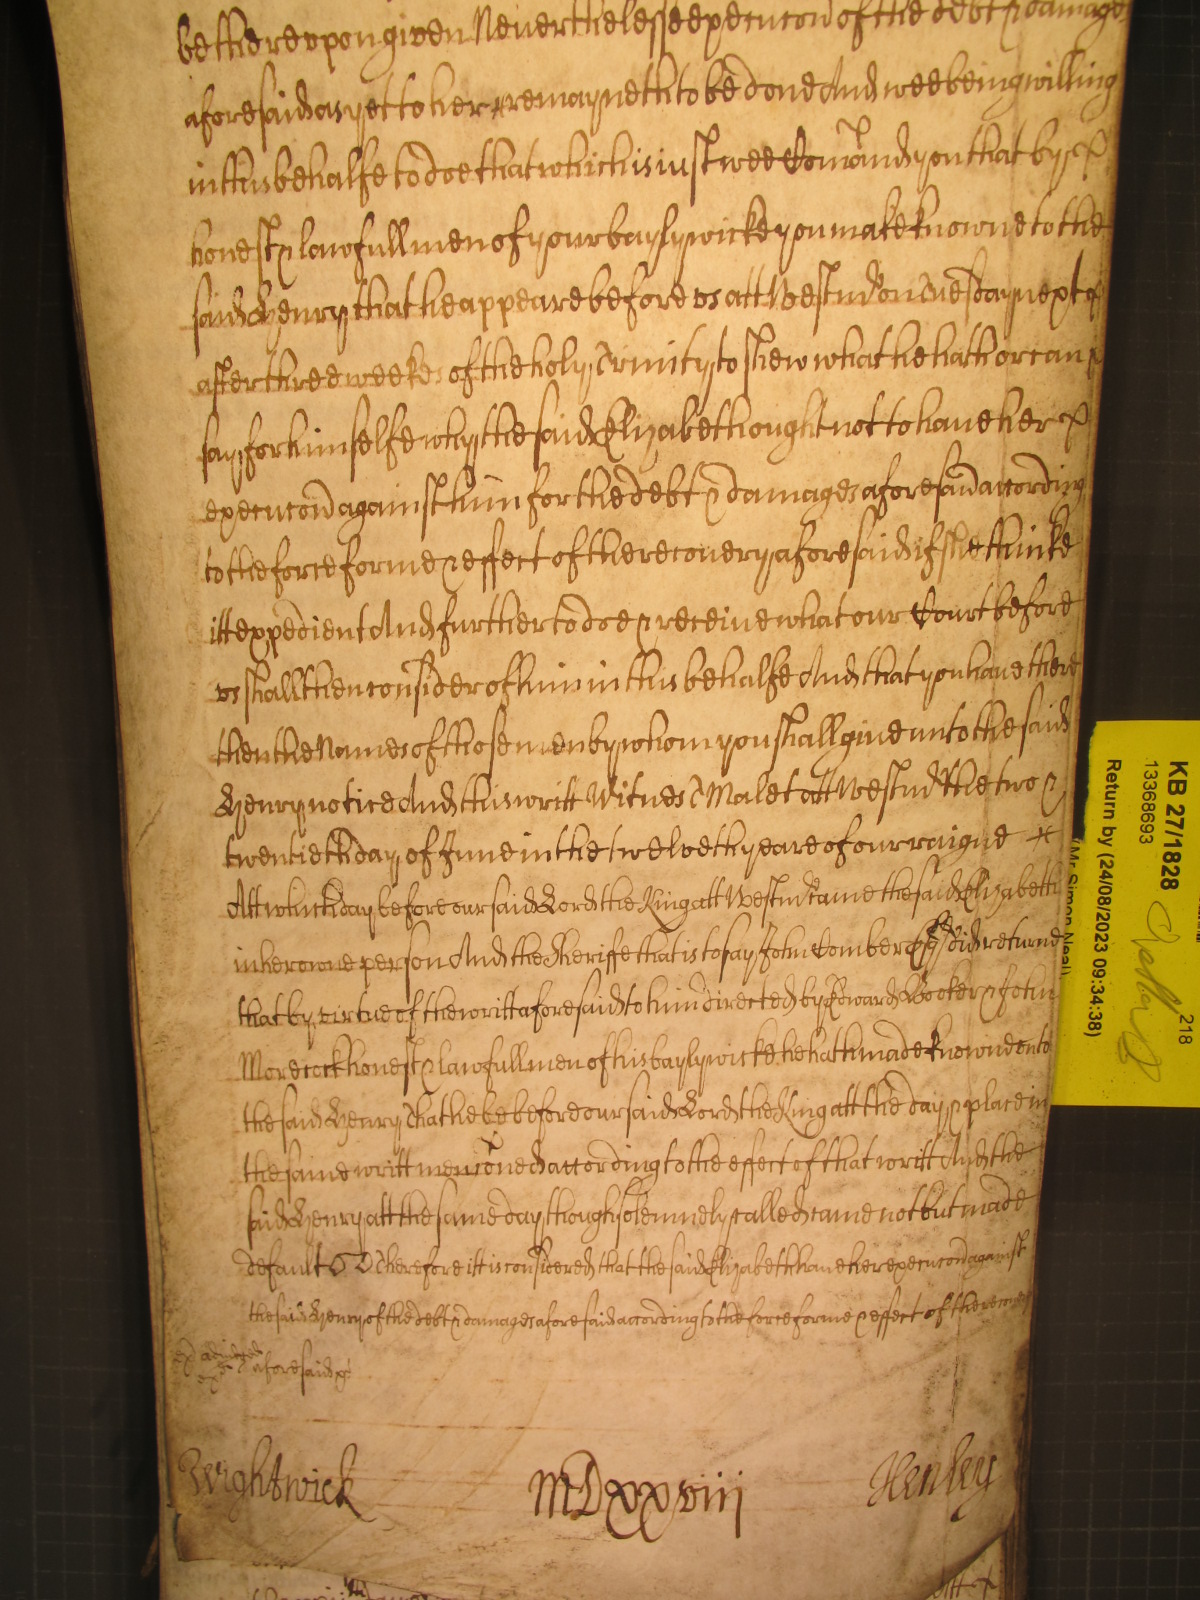 be thereupon given Neverthelesse execucon of the debt & damages
aforesaid as yet to her remayneth to be done And wee being willing
in this behalfe to doe that which is iust wee Comand you that by
honest & lawfull men of your baylywicke you make knowne to the
said Henry that he appeare before vs att Westm on Tuesday next
after three weekes of the holy Trinity to shew what he hath or can
say for himselfe why the said Elizabeth ought not to haue her
execucon against him for the debt & damages aforesaid according
to the force forme & effect of the recouery aforesaid if shee thinke
itt expedient And further to doe & receiue what our Court before
vs shall then consider of him in this behalfe And that you haue there
then the Names of those men by whom you shall giue unto the said
Henry notice And this writt Witnes T Malet att Westm the two &
twentieth day of June in the twelveth yeare of our raigne
Att which day before our said Lord the King att Westm came the said Elizabeth
in her owne person And the Sheriffe that is to say John Comber Esq did returne
that by virtue of the writt aforesaid to him directed by Edward Booker & John
Morecock honest & lawfull men of his baylywicke he hath made knowne vnto
the said Henry That he be before our said Lord the King att the day & place in
the same writt mencioned according to the effect of that writt And the
said Henry att the same day though solemnely called came not but made
default Therefore itt is considered that the said Elizabeth haue her execucon against
the said Henry of the debt & damages aforesaid according to the force forme & effect of the recouery
aforesaid &c
Wightwick MDxxviij Henley
KB 27/1828
13368693
218
Return by (24/08/2023 09:34:38)
(Mr Simon Neal)